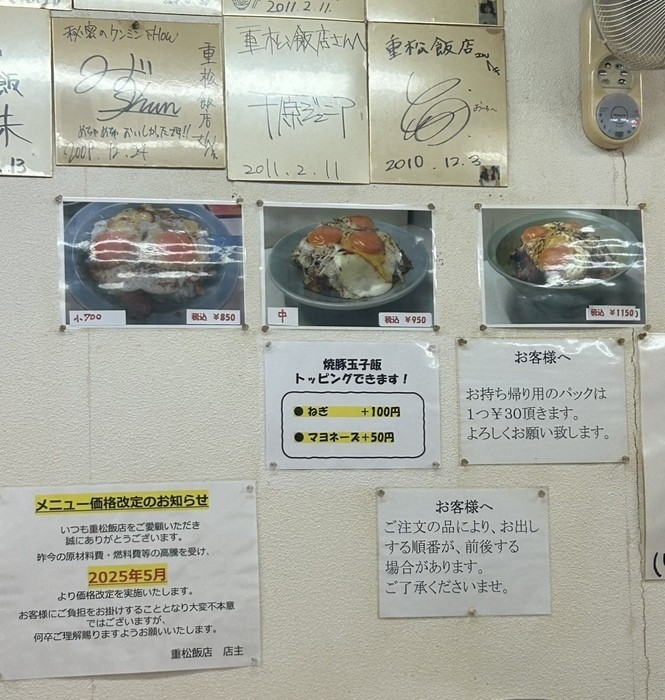 2011.2.11.
味
.13
秘密のケンミンSHOW
重松飯店さんへ
めちゃめちゃおいしかったです!!
2009.12.24
重松飯店さんへ
2011.2.11
重松飯店さんへ
2010.12.3
税込 ¥850
中
税込 ¥950
税込 ¥1150
焼豚玉子飯
トッピングできます！
● ねぎ +100円
● マヨネーズ+50円
お客様へ
お持ち帰り用のパックは
1つ¥30頂きます。
よろしくお願い致します。
メニュー価格改定のお知らせ
いつも重松飯店をご愛顧いただき
誠にありがとうございます。
昨今の原材料費・燃料費等の高騰を受け、
2025年5月
より価格改定を実施いたします。
お客様にご負担をお掛けすることとなり大変不本意
ではございますが、
何卒ご理解賜りますようお願いいたします。
重松飯店 店主
お客様へ
ご注文の品により、お出し
する順番が、前後する
場合があります。
ご了承くださいませ。